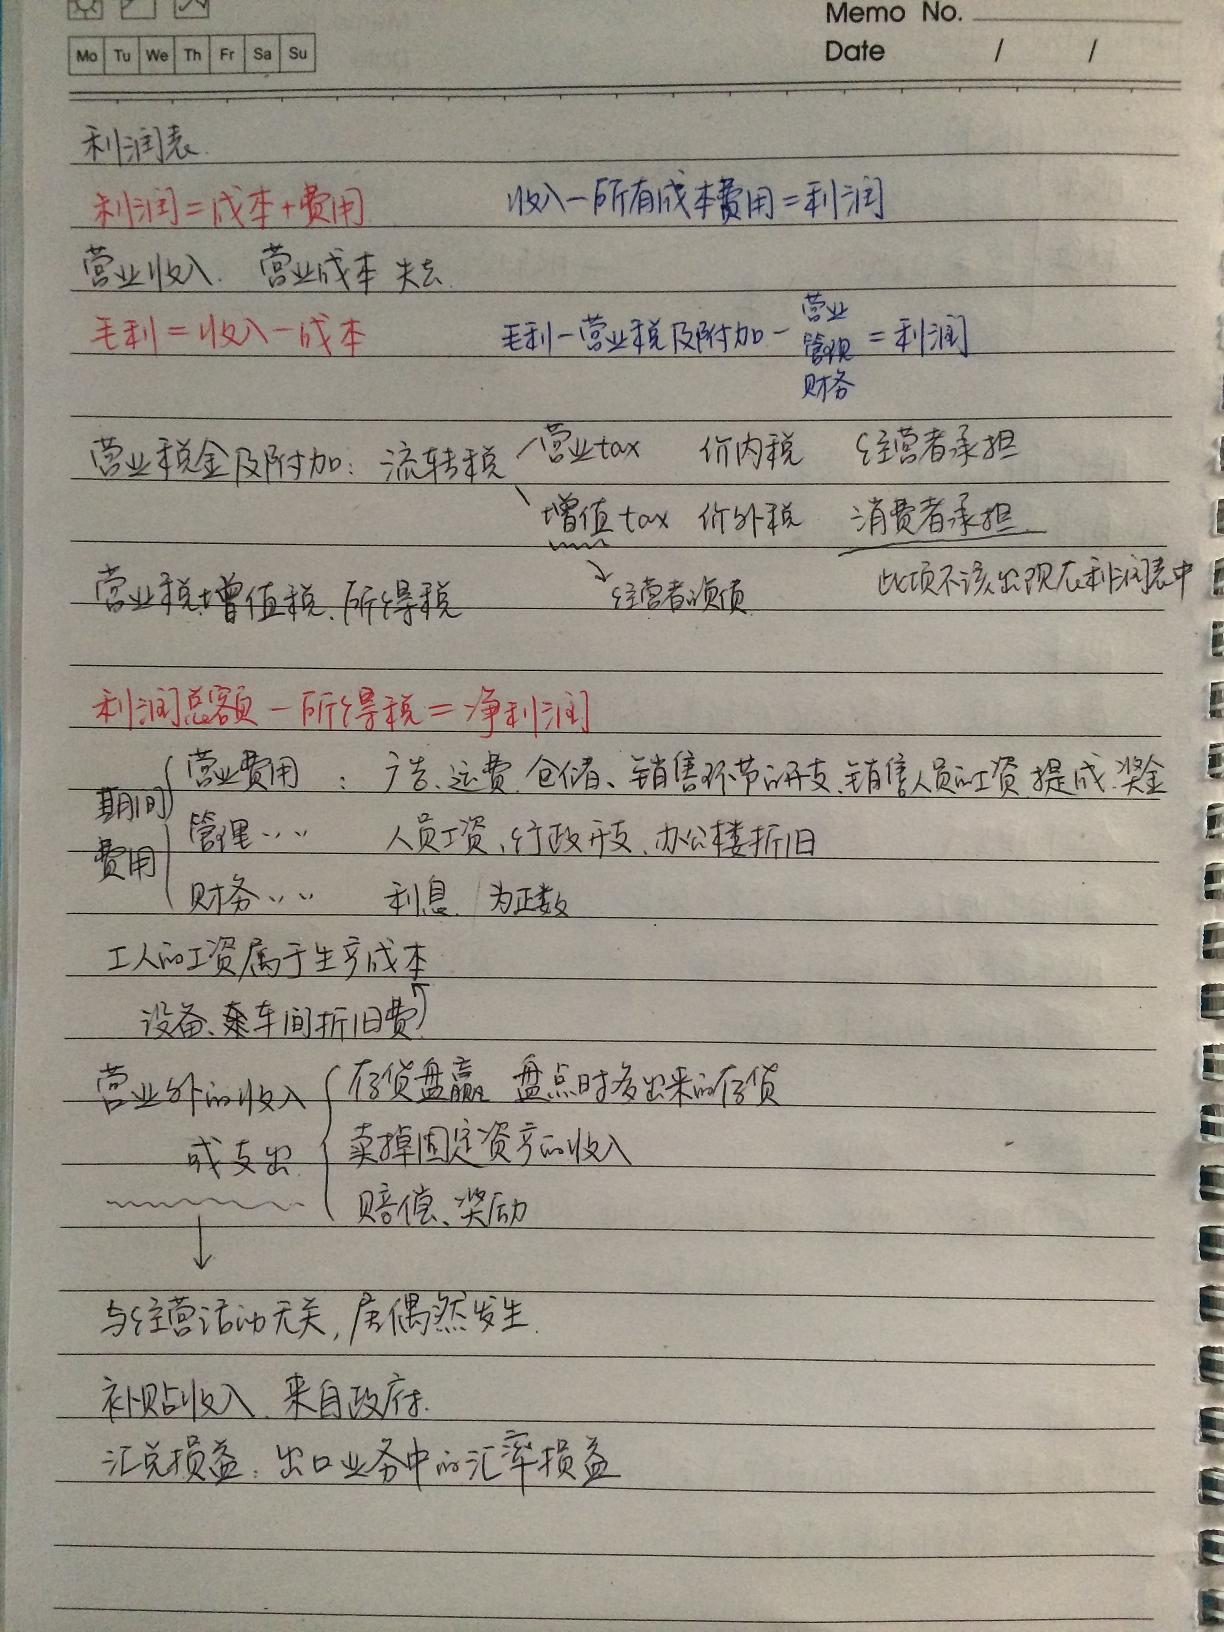 Memo No.
Mo Tu We Th Fr Sa Su
Date / /
利润表.
利润=成本+费用 收入-所有成本费用=利润
营业收入、营业成本 失去
毛利=收入-成本 毛利-营业税及附加- 营业 管理 财务 =利润
营业税金及附加: 流转税 营业tax 价内税 经营者承担
增值tax 价外税 消费者承担
经营者的负债 此项不该出现在利润表中
营业税、增值税、所得税
利润总额-所得税=净利润
期间费用
营业费用: 广告、运费、仓储、销售环节的开支、销售人员的工资、提成、奖金
管理〃〃 人员工资、行政开支、办公楼折旧
财务〃〃 利息 为正数
工人的工资属于生产成本
设备、车间折旧费
营业外的收入或支出
存货盘赢 盘点时多出来的存货
卖掉固定资产的收入
赔偿、奖励
与经营活动无关, 属偶然发生.
补贴收入、来自政府.
汇兑损益: 出口业务中的汇率损益